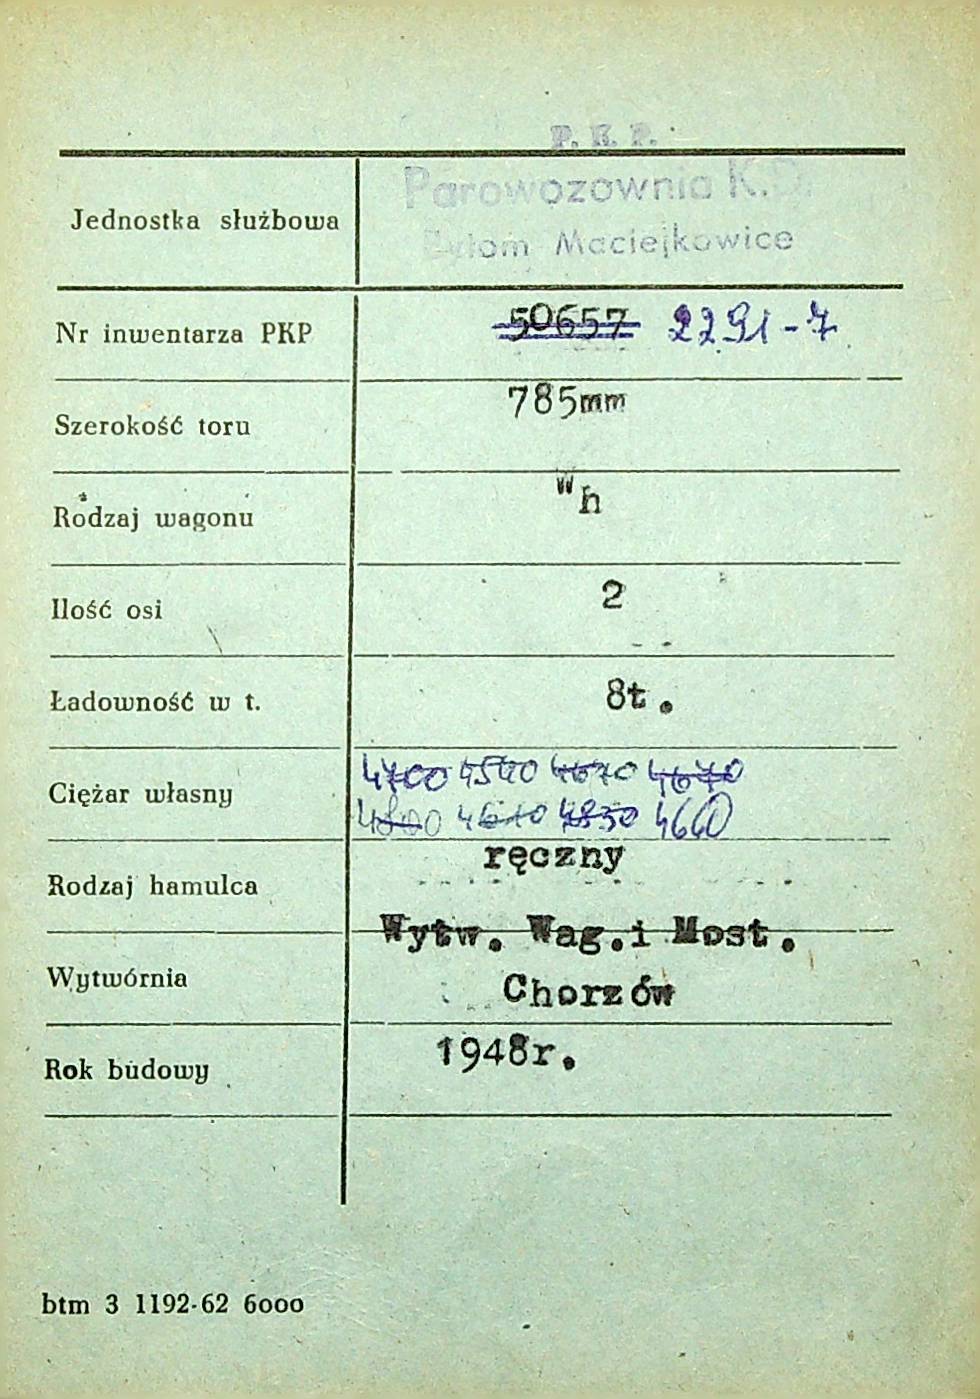 P. K. P.
Jednostka służbowa Parowozownia K.D.
Bytom Maciejkowice
Nr inwentarza PKP 50657 2291-7
Szerokość toru 785mm
Rodzaj wagonu Wh
Ilość osi 2
Ładowność w t. 8t.
4700 4540 4670 4670
Ciężar własny
4800 4610 4850 4660
Rodzaj hamulca ręczny
Wytw. Wag.i Most.
Wytwórnia Chorzów
Rok budowy 1948r.
btm 3 1192-62 6000